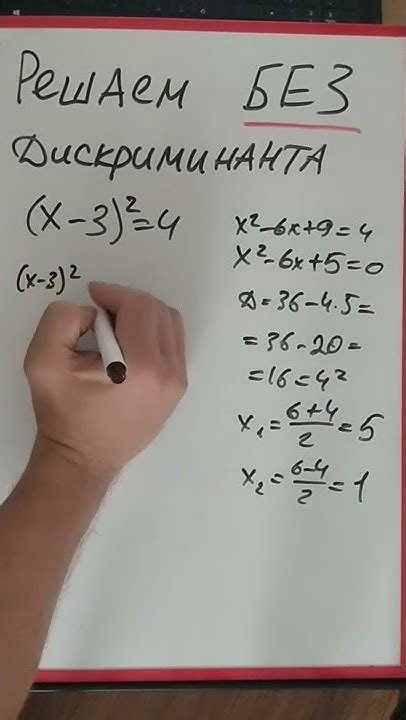 Решаем БЕЗ
Дискриминанта
(x-3)²=4
(x-3)²
x²-6x+9=4
x²-6x+5=0
Д=36-4·5=
=36-20=
=16=4²
x₁=(6+4)/2=5
x₂=(6-4)/2=1